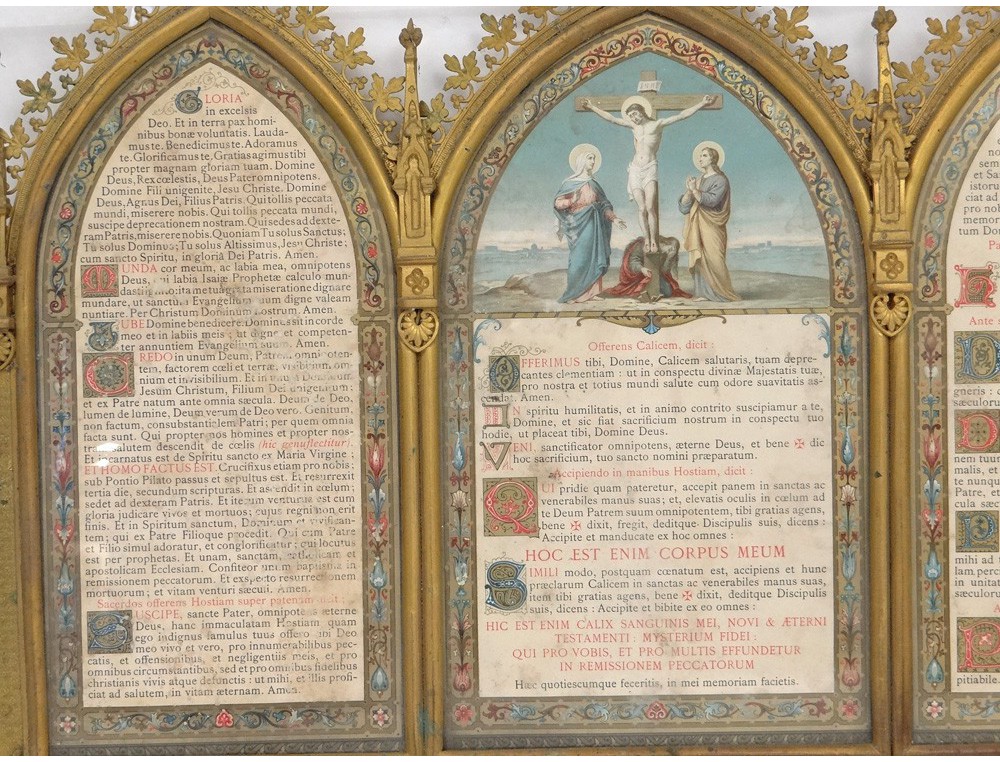 GLORIA
in excelsis
Deo. Et in terra pax homi-
nibus bonæ voluntatis. Lauda-
mus te. Benedicimus te. Adoramus
te. Glorificamus te. Gratias agimus tibi
propter magnam gloriam tuam. Domine
Deus, Rex cœlestis, Deus Pater omnipotens.
Domine Fili unigenite, Jesu Christe. Domine
Deus, Agnus Dei, Filius Patris. Qui tollis peccata
mundi, miserere nobis. Qui tollis peccata mundi,
suscipe deprecationem nostram. Qui sedes ad dexte-
ram Patris, miserere nobis. Quoniam Tu solus Sanctus;
Tu solus Dominus; Tu solus Altissimus, Jesu Christe;
cum sancto Spiritu, in gloria Dei Patris. Amen.
MUNDA cor meum, ac labia mea, omnipotens
Deus, qui labia Isaiæ Prophetæ calculo mun-
dasti ignito: ita me tua grata miseratione dignare
mundare, ut sanctum Evangelium tuum digne valeam
nuntiare. Per Christum Dominum nostrum. Amen.
JUBE Domine benedicere. Dominus sit in corde
meo et in labiis meis: ut digne et competen-
ter annuntiem Evangelium suum. Amen.
CREDO in unum Deum, Patrem omnipoten-
tem, factorem cœli et terræ, visibilium om-
nium et invisibilium. Et in unum Dominum
Jesum Christum, Filium Dei unigenitum;
et ex Patre natum ante omnia sæcula. Deum de Deo,
lumen de lumine, Deum verum de Deo vero. Genitum,
non factum, consubstantialem Patri; per quem omnia
facta sunt. Qui propter nos homines et propter nos-
tram salutem descendit de cœlis (hic genuflectitur).
Et incarnatus est de Spiritu sancto ex Maria Virgine:
ET HOMO FACTUS EST. Crucifixus etiam pro nobis;
sub Pontio Pilato passus et sepultus est. Et resurrexit
tertia die, secundum scripturas. Et ascendit in cœlum;
sedet ad dexteram Patris. Et iterum venturus est cum
gloria judicare vivos et mortuos; cujus regni non erit
finis. Et in Spiritum sanctum, Dominum et vivifican-
tem; qui ex Patre Filioque procedit. Qui cum Patre
et Filio simul adoratur, et conglorificatur; qui locutus
est per prophetas. Et unam, sanctam, catholicam et
apostolicam Ecclesiam. Confiteor unum baptisma in
remissionem peccatorum. Et exspecto resurrectionem
mortuorum; et vitam venturi sæculi. Amen.
Sacerdos offerens Hostiam super patenam dicit:
SUSCIPE, sancte Pater, omnipotens æterne
Deus, hanc immaculatam Hostiam quam
ego indignus famulus tuus offero tibi Deo
meo vivo et vero, pro innumerabilibus pec-
catis, et offensionibus, et negligentiis meis, et pro
omnibus circumstantibus, sed et pro omnibus fidelibus
christianis vivis atque defunctis: ut mihi, et illis profi-
ciat ad salutem, in vitam æternam. Amen.
INRI
Offerens Calicem, dicit:
OFFERIMUS tibi, Domine, Calicem salutaris, tuam depre-
cantes clementiam: ut in conspectu divinæ Majestatis tuæ,
pro nostra et totius mundi salute cum odore suavitatis as-
cendat. Amen.
IN spiritu humilitatis, et in animo contrito suscipiamur a te,
Domine, et sic fiat sacrificium nostrum in conspectu tuo
hodie, ut placeat tibi, Domine Deus.
VENI, sanctificator omnipotens, æterne Deus, et bene ✠ dic
hoc sacrificium, tuo sancto nomini præparatum.
Accipiendo in manibus Hostiam, dicit:
QUI pridie quam pateretur, accepit panem in sanctas ac
venerabiles manus suas; et, elevatis oculis in cœlum ad
te Deum Patrem suum omnipotentem, tibi gratias agens,
bene ✠ dixit, fregit, deditque Discipulis suis, dicens:
Accipite et manducate ex hoc omnes:
HOC EST ENIM CORPUS MEUM
SIMILI modo, postquam cœnatum est, accipiens et hunc
præclarum Calicem in sanctas ac venerabiles manus suas,
item tibi gratias agens, bene ✠ dixit, deditque Discipulis
suis, dicens: Accipite et bibite ex eo omnes:
HIC EST ENIM CALIX SANGUINIS MEI, NOVI & ÆTERNI
TESTAMENTI: MYSTERIUM FIDEI:
QUI PRO VOBIS, ET PRO MULTIS EFFUNDETUR
IN REMISSIONEM PECCATORUM
Hæc quotiescumque feceritis, in mei memoriam facietis.
sem
et San
istoru
ad
pro nob
tum Dom
Pa
Ante
gneris:
sæculoru
nem tuu
malis, et
te nunqu
Patre, et
cula sæc
mihi ad
lam, perc
in unitat
sæculoru
pitiabile.